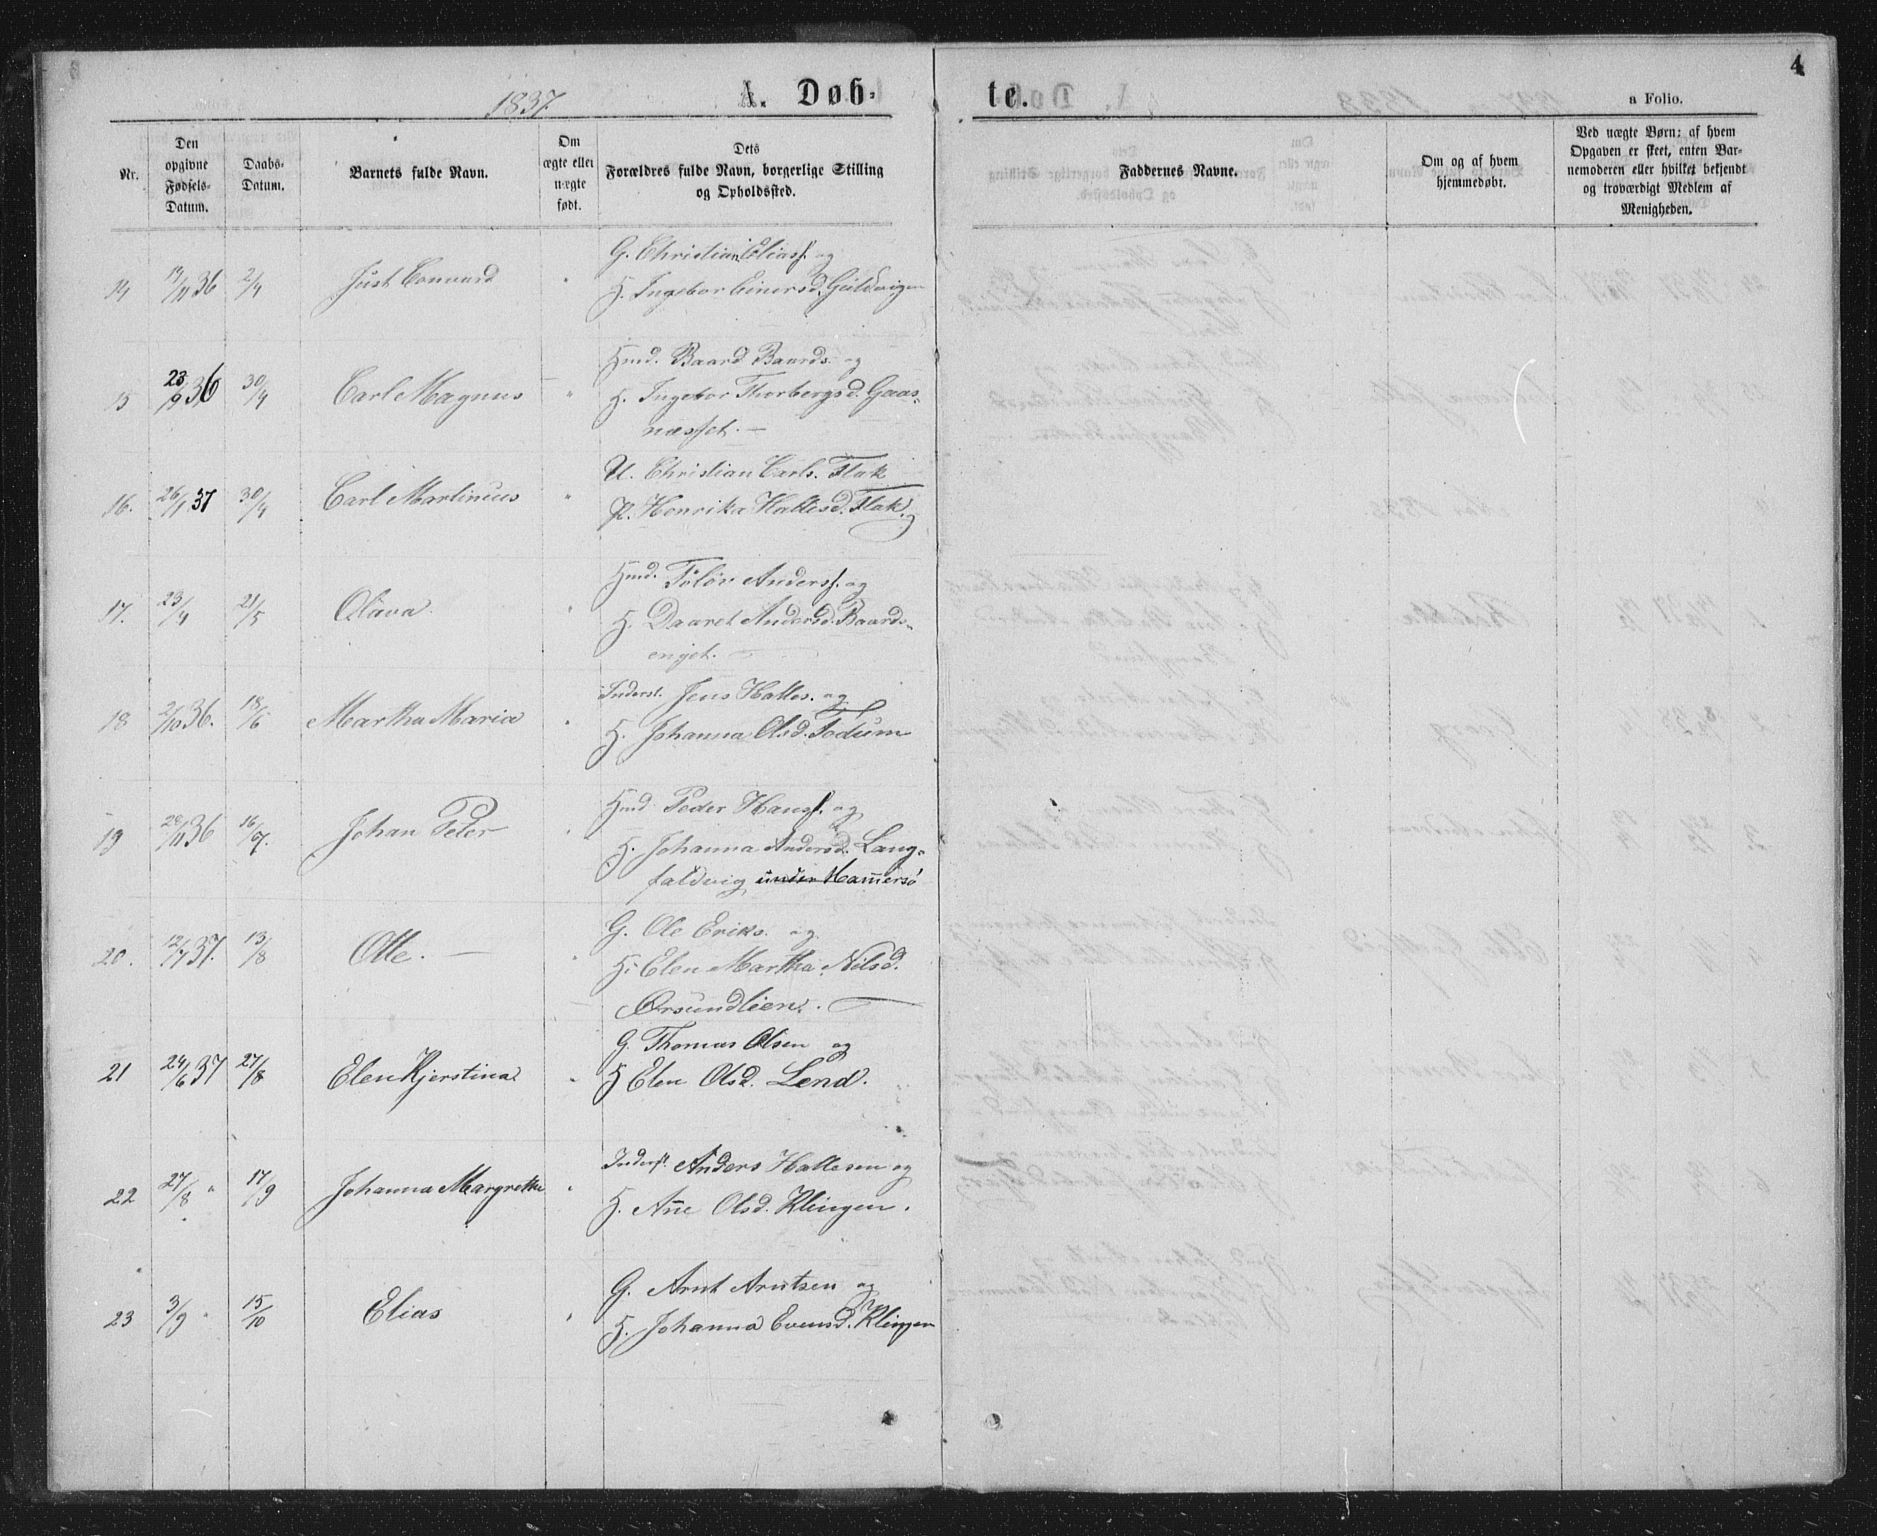 1837.
A. Døb-
te.
4
a Folio.
Nr.
Den
opgivne
Fødsels-
Datum.
Daabs-
Datum.
Barnets fulde Navn.
Om
ægte eller
uægte
født.
Dets
Forældres fulde Navn, borgerlige Stilling
og Opholdssted.
Faddernes Navne.
Om og af hvem
hjemmedøbt.
Ved uægte Børn: af hvem
Opgaven er skeet, enten Bar-
nemoderen eller hvilket bekjendt
og troværdigt Medlem af
Menigheden.
14 36 2/4 Just Conrard " G. Christian Eliass. og
H. Ingebor Einersd. Guldvigen
15 23/9 36 30/4 Carl Magnus " Hmd. Baard Baards. og
H. Ingebor Thorbergsd. Gaas-
næsset.
16. 26/1 37 30/4 Carl Martinus " U. Christian Carls. Flak
P. Henrika Hallesd. Flak
17. 23/4 21/5 Olava " Hmd. Tøløv Anderss. og
H. Daaret Andersd. Baards-
enget.
18 2/10 36. 18/6 Martha Maria " Inderst. Jens Halles. og
H. Johanna Olsd. Fodum
19 36 16/7. Johan Peter " Hmd. Peder Hanss. og
H. Johanna Andersd. Lang-
faldvig under Hammersø
20. 12/7 37. 13/8 Otte. " G. Ole Eriks. og
H. Elen Martha Nilsd.
Ørsundlien.
21 24/6 37 27/8 Elen Kjerstina " G. Thomas Olsen og
H Elen Olsd. Lend.
22 27/8 " 17/9 Johanna Margrethe " Inderst. Anders Hallesen og
H. Añe Olsd. Klingen.
23 3/9 " 15/10 Elias " G. Arnt Arntsen og
H. Johanna Evensd. Klingen